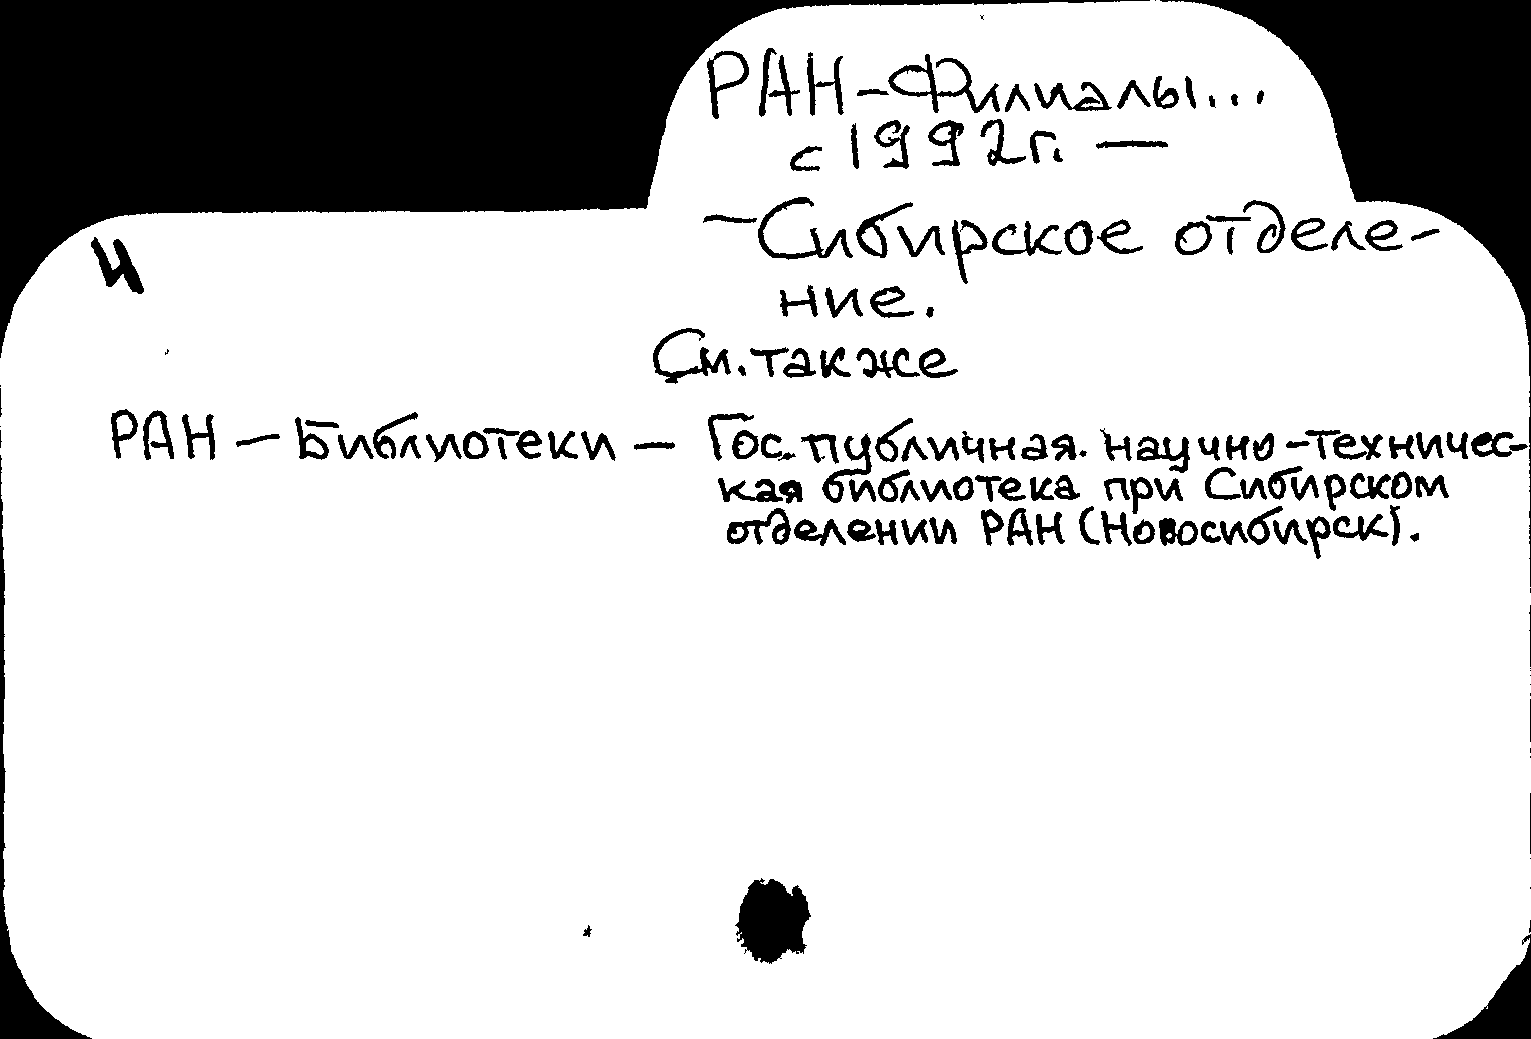 РАН-Филиалы...
с 1992г. —
— Сибирское отделе-
ние.
См. также
РАН — Библиотеки — Гос. публичная. научно-техничес-
кая библиотека при Сибирском
отделении РАН (Новосибирск).